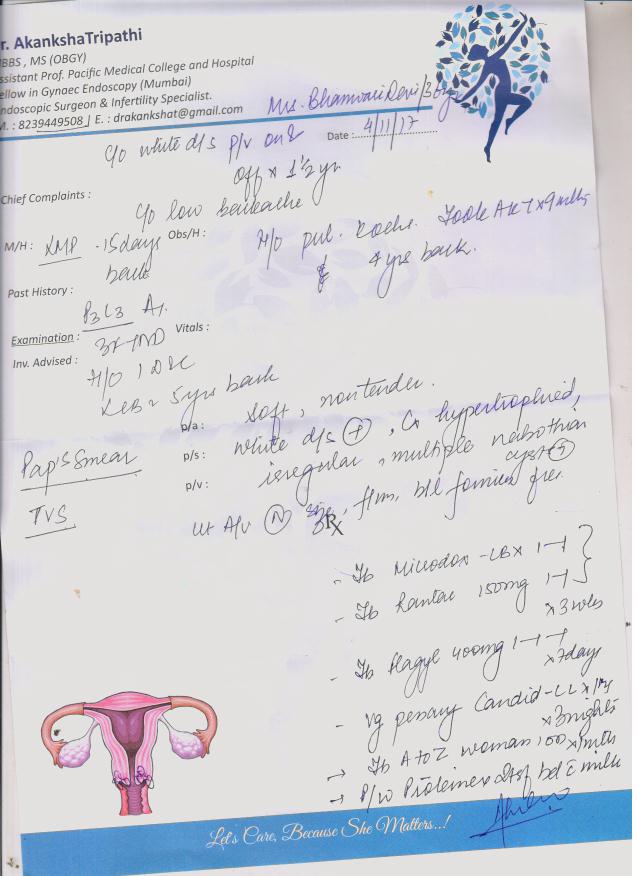 r. AkankshaTripathi
BBS , MS (OBGY)
ssistant Prof. Pacific Medical College and Hospital
ellow in Gynaec Endoscopy (Mumbai)
ndoscopic Surgeon & Infertility Specialist.
M. : 8239449508 | E. : drakankshat@gmail.com
Mrs. Bhanwari Devi/36yr
Date : 4/11/17
c/o white d/s p/v on &
off x 1½ yr
Chief Complaints :
c/o low backache
M/H : LMP - 15days
back
Obs/H : H/o pul. Kochs. Took AKT x 9 mths
4 yrs back.
Past History :
P3L3 A1
Examination : 3FTND
Vitals :
Inv. Advised : H/O 1 D&C
LCB = 5yrs back
p/a : soft, nontender.
Pap's Smear
p/s : white d/s (+), Cx hypertrophied,
irregular, multiple nabothian
cyst (+)
p/v : ut A/v (N) size, firm, b/l fornices free
TVS
Rx
- Tb Microdox-LBX 1-1
- Tb Rantac 150mg 1-1
x 3wks
- Tb Flagyl 400mg 1-1-1
x 7days
- Vg pessary Candid-CL x 1
x 3nights
→ Tb A to Z woman 1 OD x 1mth
→ P/w Proteinex 2tsf bd c milk
Let's Care, Because She Matters...!